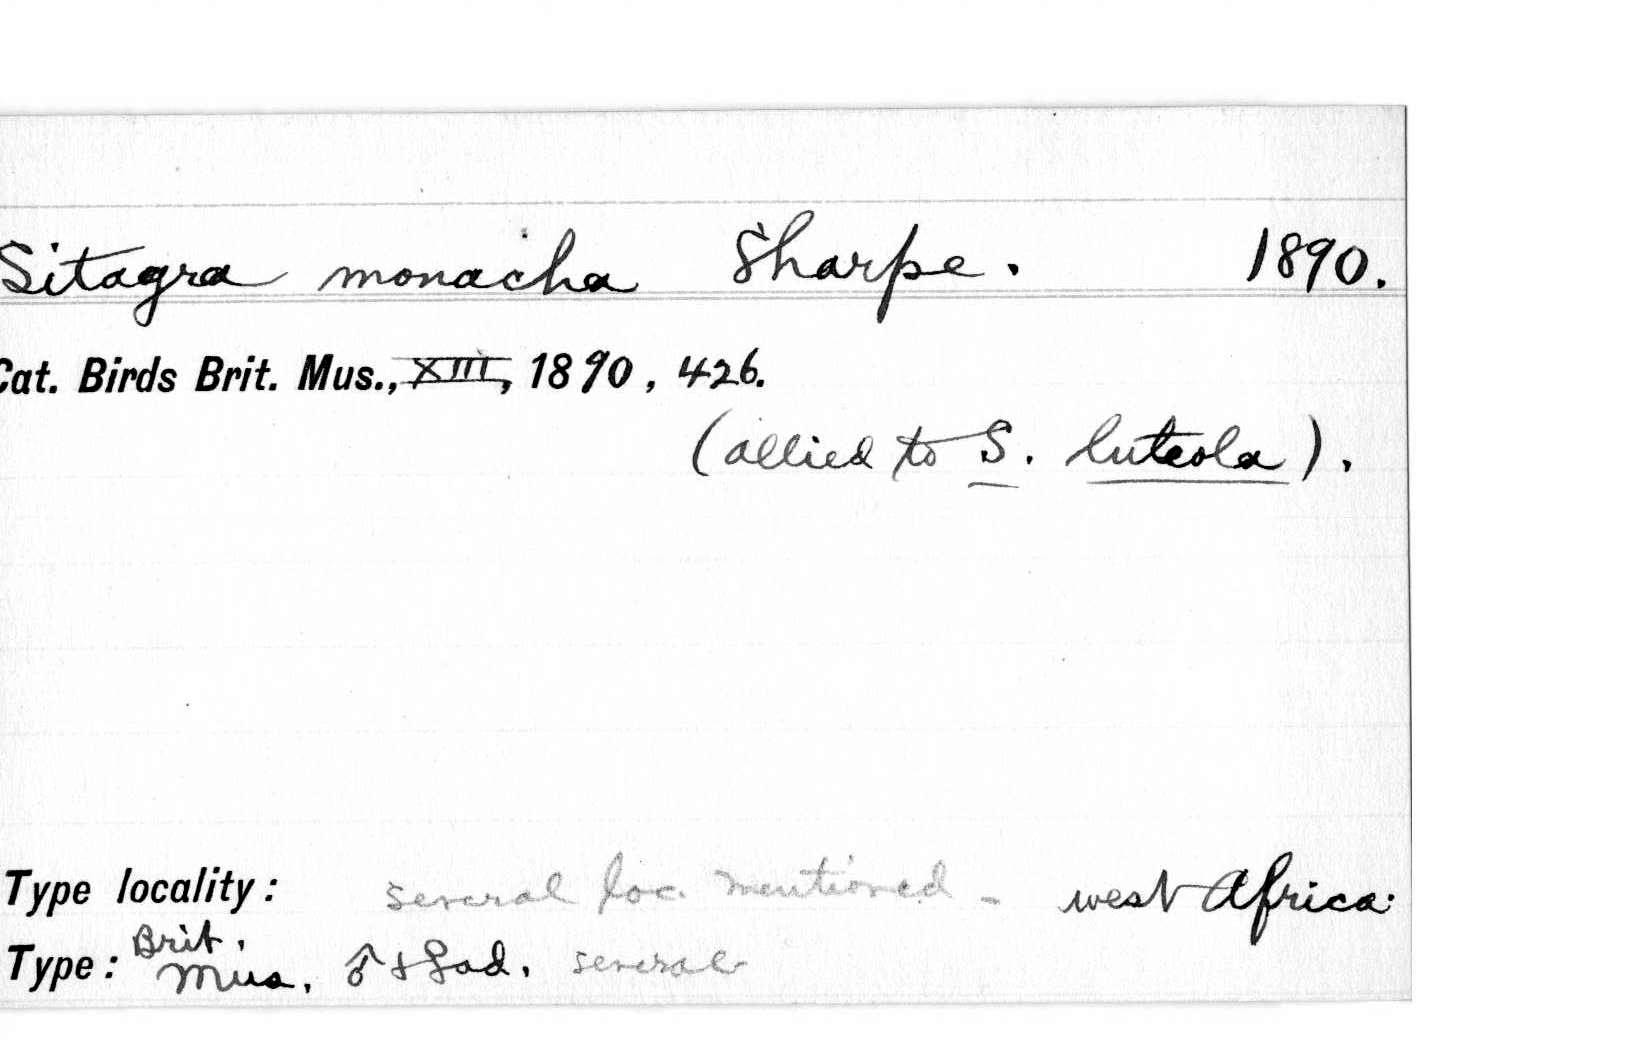 Sitagra monacha Sharpe. 1890.
Cat. Birds Brit. Mus., XIII, 1890, 426.
(allied to S. luteola).
Type locality: several loc. mentioned - west Africa.
Type: Brit. Mus. ♂ + ♀ ad. several